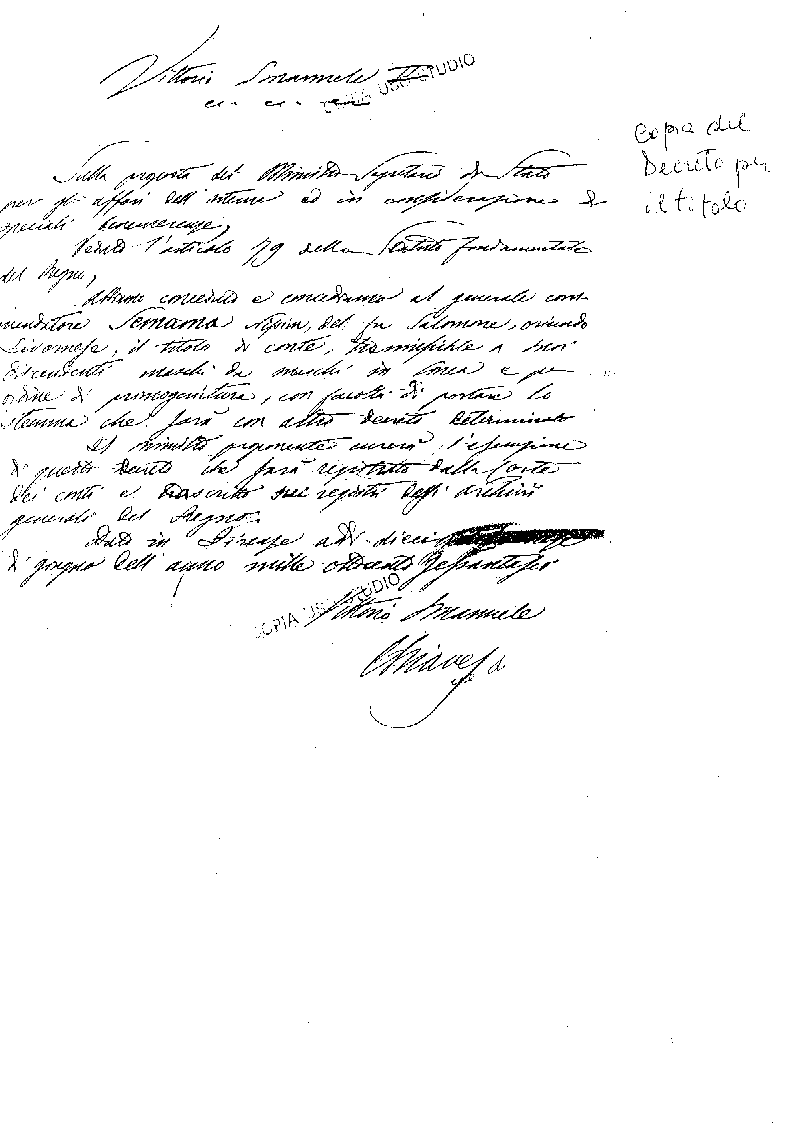 Vittorio Emanuele II
ec. ec. ec.
COPIA USO STUDIO
Copia del
Decreto per
il titolo
Sulla proposta del Ministro Segretario di Stato
per gli affari dell'interno ed in considerazione di
speciali benemerenze,
Veduto l'articolo 79 dello Statuto fondamentale
del Regno,
Abbiamo conceduto e concediamo al generale com
mendatore Semama Nissim, del fu Salomone, oriundo
Livornese, il titolo di conte, trasmissibile a suoi
discendenti maschi da maschi in linea e per
ordine di primogenitura, con facoltà di portare lo
stemma che sarà con altro decreto determinato
Il ministro proponente curerà l'esecuzione
di questo decreto che sarà registrato dalla Corte
dei conti e trascritto nei registri degli archivi
generali del Regno.
Dato in Firenze addì dieci
di giugno dell'anno mille ottocento sessantasei
COPIA USO STUDIO
Vittorio Emanuele
Chiaves